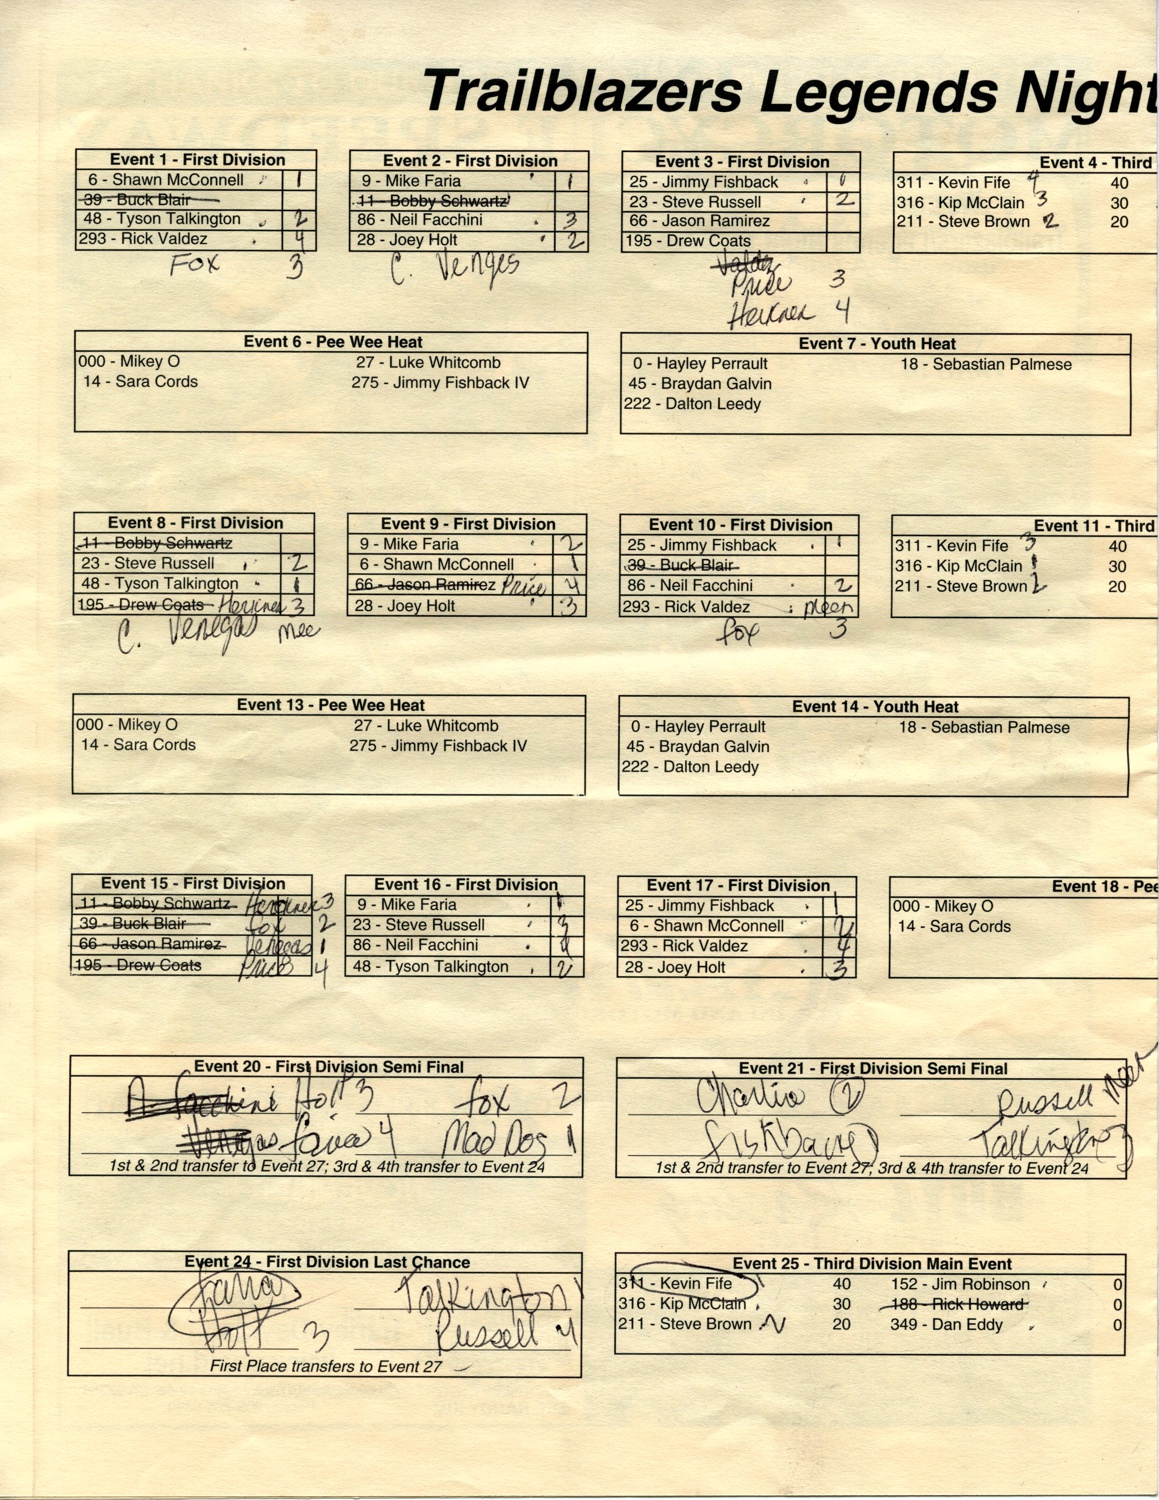 Trailblazers Legends Night
Event 1 - First Division
6 - Shawn McConnell 1
39 - Buck Blair
48 - Tyson Talkington 2
293 - Rick Valdez 4
Fox 3
Event 2 - First Division
9 - Mike Faria 1
11 - Bobby Schwartz
86 - Neil Facchini 3
28 - Joey Holt 2
C. Venges
Event 3 - First Division
25 - Jimmy Fishback 1
23 - Steve Russell 2
66 - Jason Ramirez
195 - Drew Coats
Valdz
Price 3
Herkner 4
Event 4 - Third
311 - Kevin Fife 4 40
316 - Kip McClain 3 30
211 - Steve Brown 2 20
Event 6 - Pee Wee Heat
000 - Mikey O 27 - Luke Whitcomb
14 - Sara Cords 275 - Jimmy Fishback IV
Event 7 - Youth Heat
0 - Hayley Perrault 18 - Sebastian Palmese
45 - Braydan Galvin
222 - Dalton Leedy
Event 8 - First Division
11 - Bobby Schwartz
23 - Steve Russell 2
48 - Tyson Talkington 1
195 - Drew Coats Herkner 3
C. Venegas
Event 9 - First Division
9 - Mike Faria 2
6 - Shawn McConnell 1
66 - Jason Ramirez Price 4
28 - Joey Holt 3
Event 10 - First Division
25 - Jimmy Fishback 1
39 - Buck Blair
86 - Neil Facchini 2
293 - Rick Valdez
fox 3
Event 11 - Third
311 - Kevin Fife 3 40
316 - Kip McClain 1 30
211 - Steve Brown 2 20
Event 13 - Pee Wee Heat
000 - Mikey O 27 - Luke Whitcomb
14 - Sara Cords 275 - Jimmy Fishback IV
Event 14 - Youth Heat
0 - Hayley Perrault 18 - Sebastian Palmese
45 - Braydan Galvin
222 - Dalton Leedy
Event 15 - First Division
11 - Bobby Schwartz Herkner 3
39 - Buck Blair fox 2
66 - Jason Ramirez Venegas 1
195 - Drew Coats Price 4
Event 16 - First Division
9 - Mike Faria 1
23 - Steve Russell 3
86 - Neil Facchini
48 - Tyson Talkington 2
Event 17 - First Division
25 - Jimmy Fishback 1
6 - Shawn McConnell 2
293 - Rick Valdez 4
28 - Joey Holt 3
Event 18 - Pee
000 - Mikey O
14 - Sara Cords
Event 20 - First Division Semi Final
Facchini Holt 3 fox 2
Venegas faria 4 Mad Dog 1
1st & 2nd transfer to Event 27; 3rd & 4th transfer to Event 24
Event 21 - First Division Semi Final
Charlie 2 Russell
fishback 1 Talkington 3
1st & 2nd transfer to Event 27; 3rd & 4th transfer to Event 24
Event 24 - First Division Last Chance
faria Talkington 1
Holt 3 Russell 4
First Place transfers to Event 27
Event 25 - Third Division Main Event
311 - Kevin Fife 1 40 152 - Jim Robinson 0
316 - Kip McClain 30 188 - Rick Howard 0
211 - Steve Brown 20 349 - Dan Eddy 0